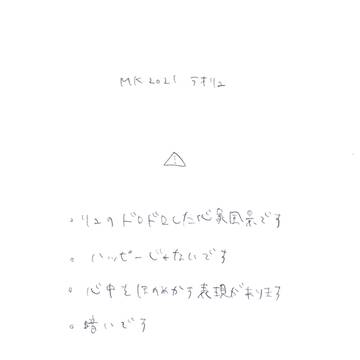 MK2021 テオリュ
⚠
・リュのドロドロした心象風景です
・ハッピーじゃないです
・心中をほのめかす表現があります
・暗いです